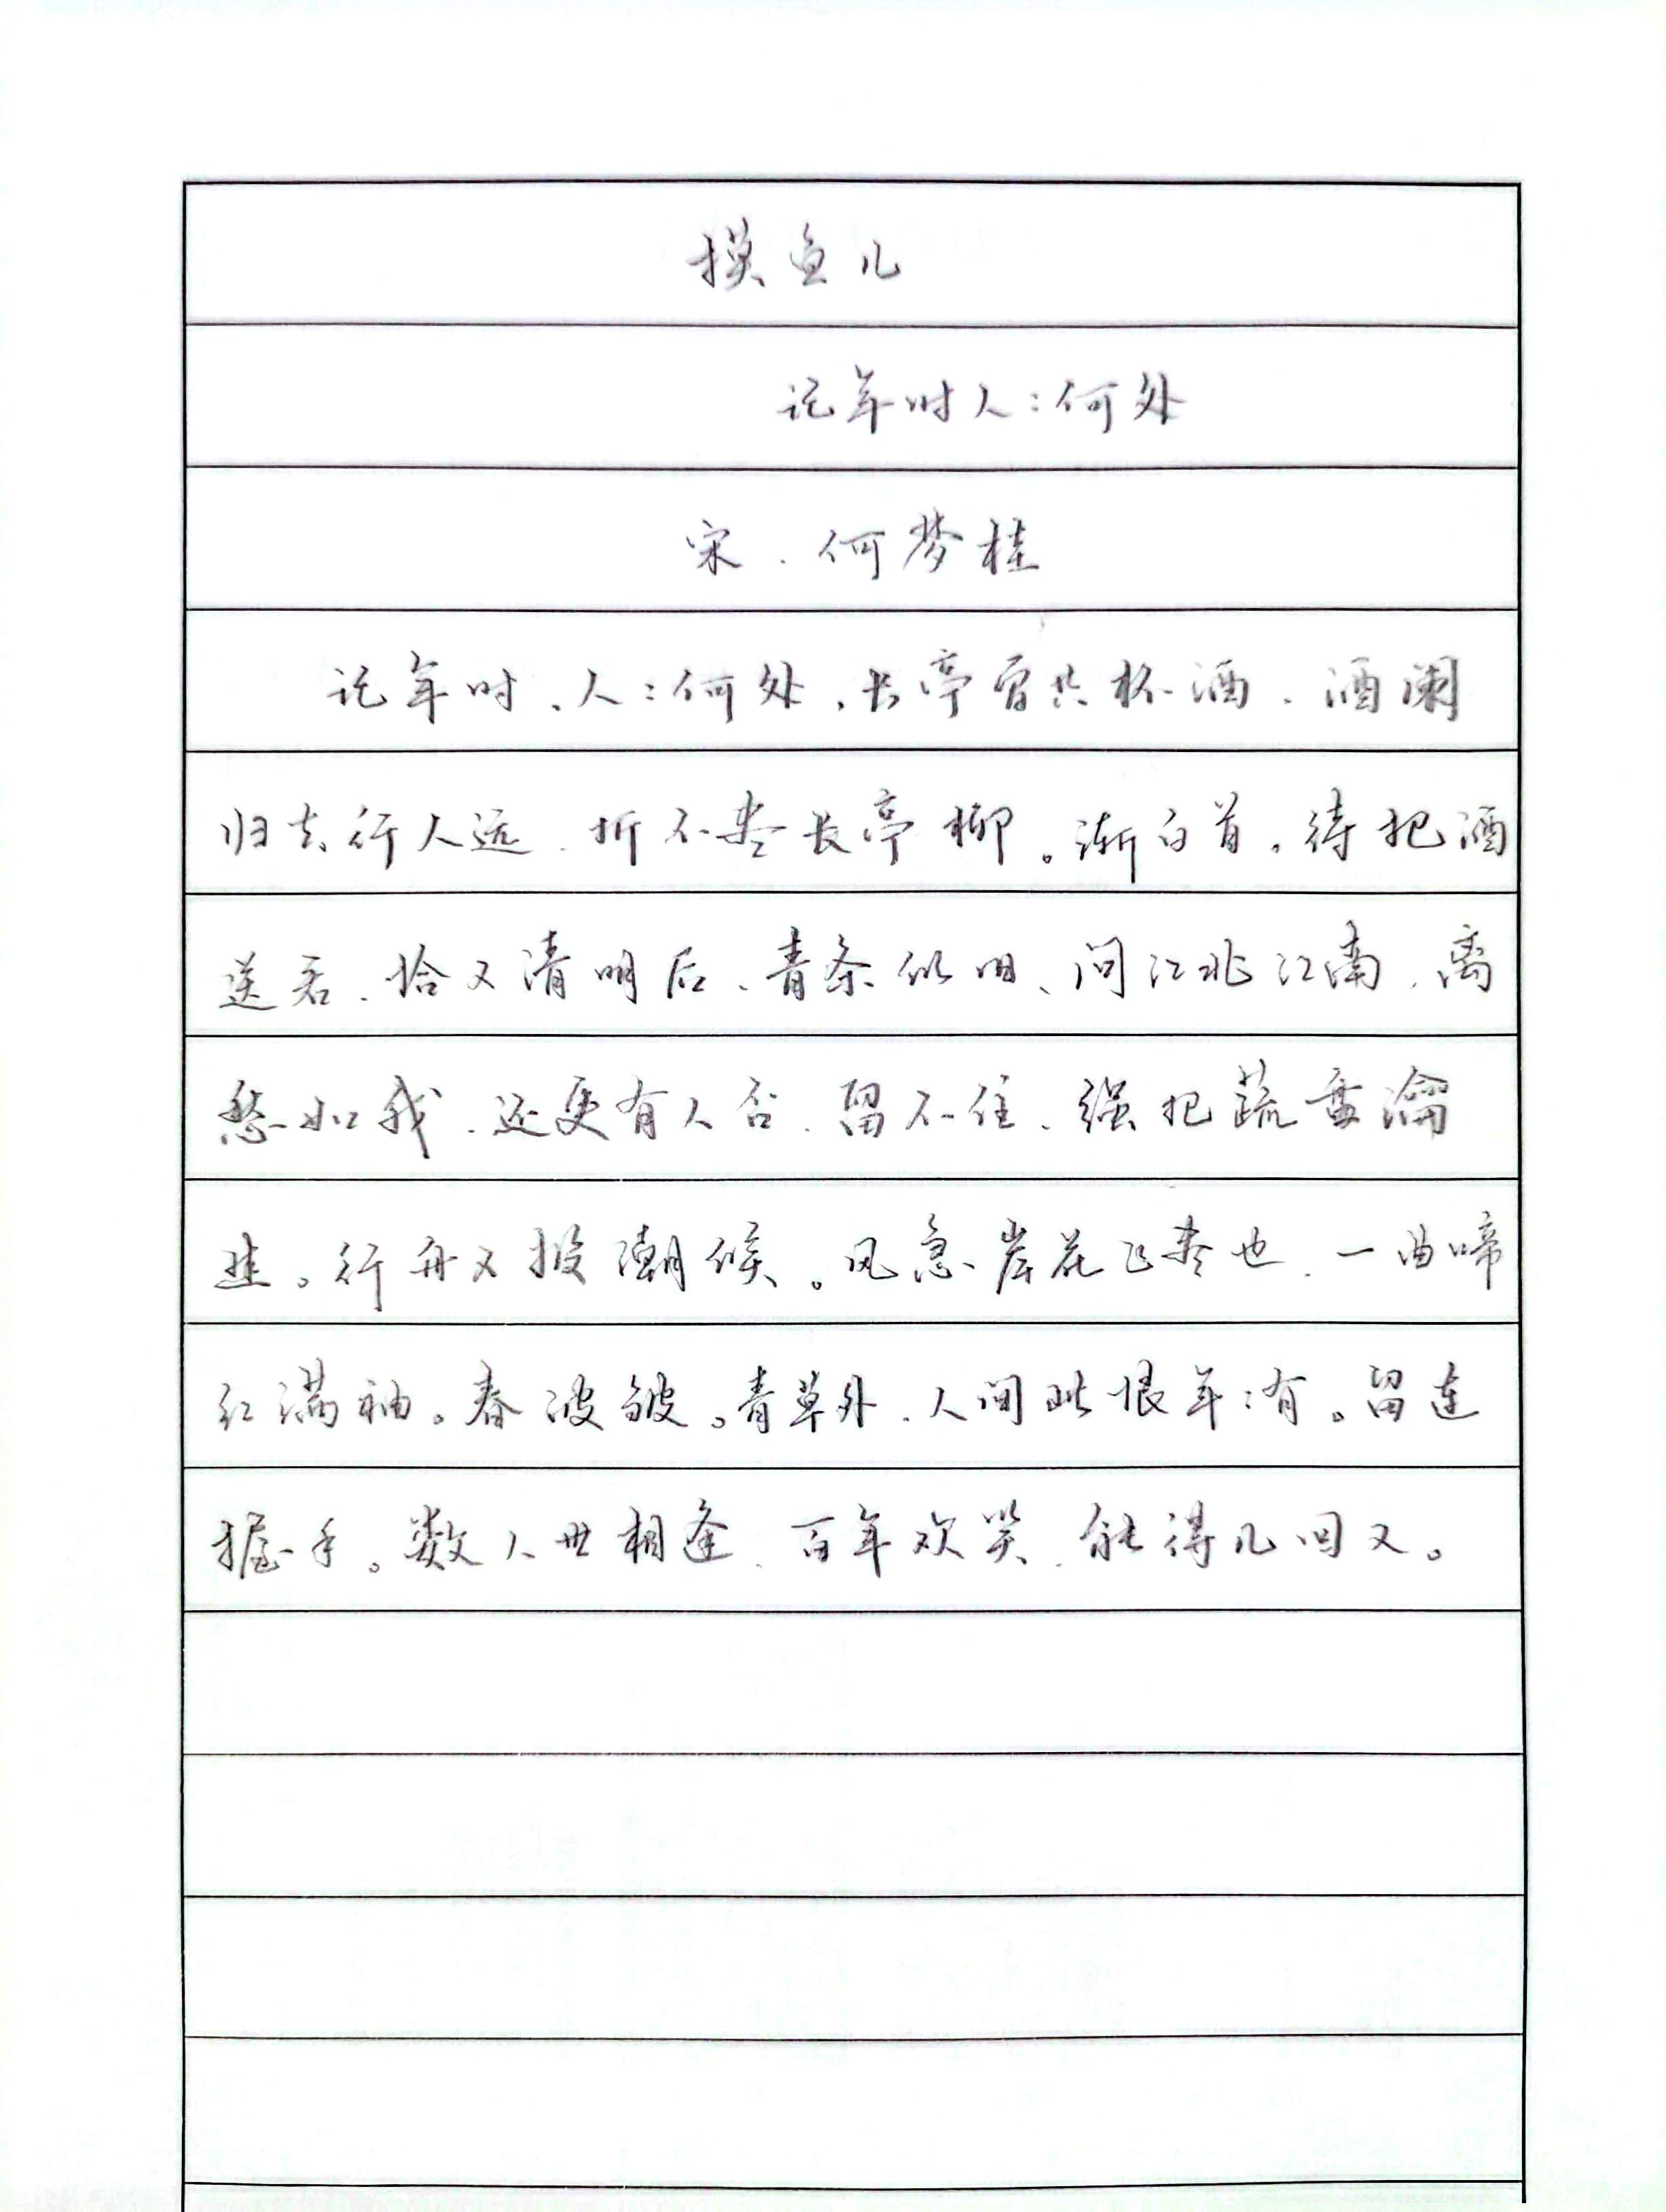 摸鱼儿
记年时人:何处
宋.何梦桂
记年时、人:何处,长亭曾共杯酒.酒阑
归去行人远.折不尽长亭柳。渐白首。待把酒
送君.恰又清明后、青条似旧、问江北江南.离
愁如我.还更有人否.留不住、强把蔬盘瀹
韭。行舟又报潮候。风急岸花飞尽也.一曲啼
红满袖。春波皱。青草外.人间此恨年:有。留连
握手。数人世相逢.百年欢笑.能得几回又。